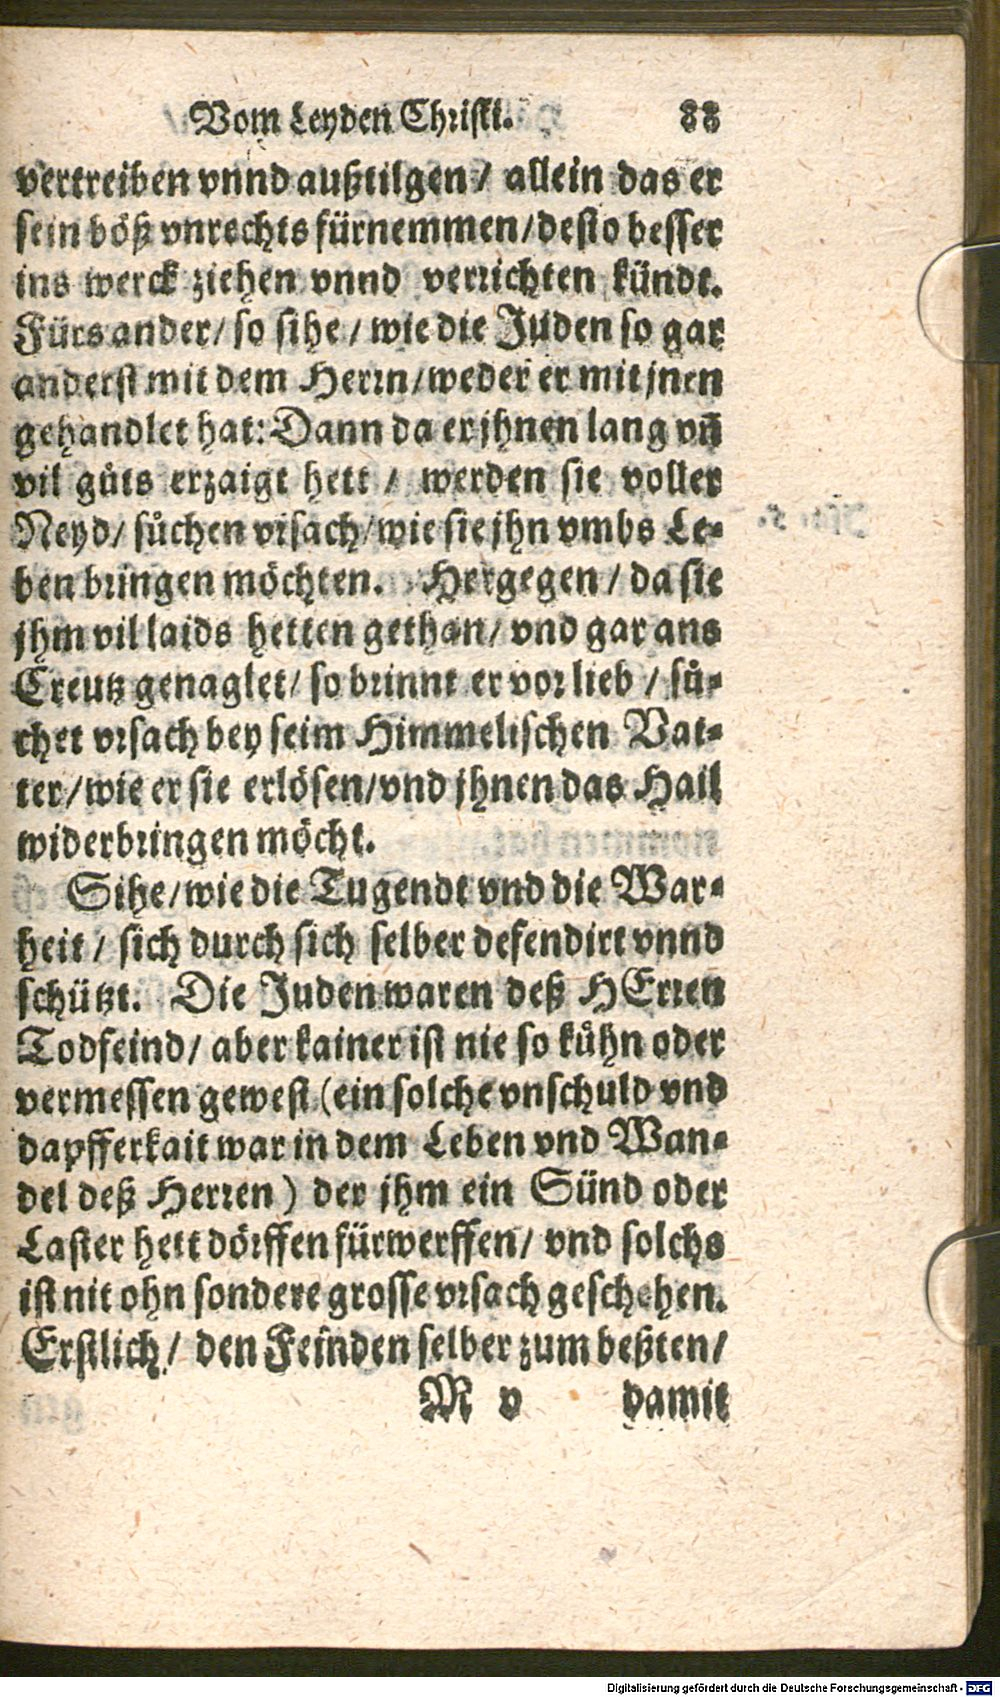 Vom Leyden Christi. 88
vertreiben vnnd außtilgen / allein das er
sein böß vnrechts fürnemmen / desto besser
ins werck ziehen vnnd verrichten kündt.
Fürs ander / so sihe / wie die Juden so gar
anderst mit dem Herrn / weder er mit jnen
gehandlet hat: Dann da er jhnen lang vñ
vil gůts erzaigt hett / werden sie voller
Neyd / sůchen vrsach / wie sie jhn vmbs Le-
ben bringen möchten. Hergegen / da sie
jhm vil laids hetten gethan / vnd gar ans
Creutz genaglet / so brinnt er vor lieb / sů-
chet vrsach bey seim Himmelischen Vat-
ter / wie er sie erlösen / vnd jhnen das Hail
widerbringen möcht.
Sihe / wie die Tugendt vnd die War-
heit / sich durch sich selber defendirt vnnd
schützt. Die Juden waren deß HErren
Todfeind / aber kainer ist nie so kůhn oder
vermessen gewest (ein solche vnschuld vnd
dapfferkait war in dem Leben vnd Wan-
del deß Herren) der jhm ein Sünd oder
Laster hett dörffen fürwerffen / vnd solchs
ist nit ohn sondere grosse vrsach geschehen.
Erstlich / den Feinden selber zum beßten /
M v damit
Digitalisierung gefördert durch die Deutsche Forschungsgemeinschaft - DFG